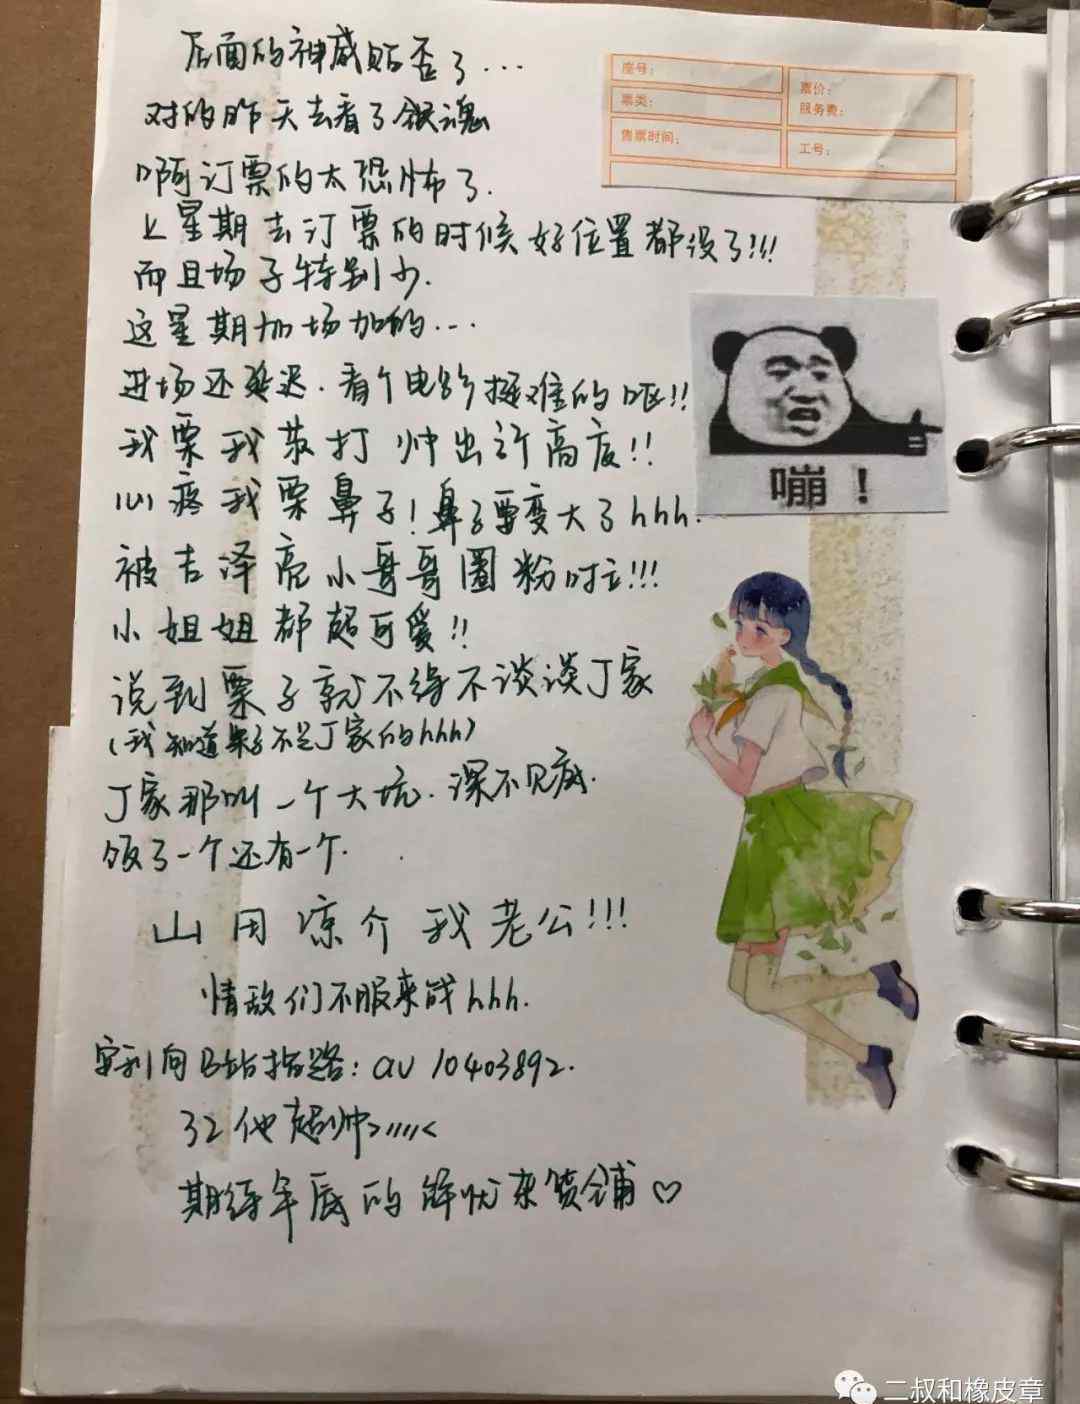 后面的神威贴歪了...
座号:
票价:
票类:
服务费:
售票时间:
工号:
对的昨天去看了银魂
啊订票的太恐怖了.
上星期去订票的时候好位置都没了!!!
而且场子特别少.
这星期加场加的...
进场还延迟.看个电影挺难的呕!!
我栗我苏打 帅出新高度!!
心疼我栗鼻子!鼻子要变大了hhh.
嘣!
被吉泽亮小哥哥圈粉时!!!
小姐姐都超可爱!!
说到栗子就不得不谈谈J家
(我知道栗子不是J家的hhh)
J家那叫一个大坑.深不见底.
饭了一个还有一个.
山田凉介我老公!!!
情敌们不服来战hhh.
安利向B站指路:av 10403892.
32他超帅
期待年底的解忧杂货铺♡
二叔和橡皮章